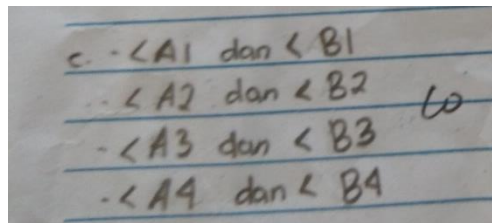 c. - < A1 dan < B1
- < A2 dan < B2
- < A3 dan < B3
- < A4 dan < B4